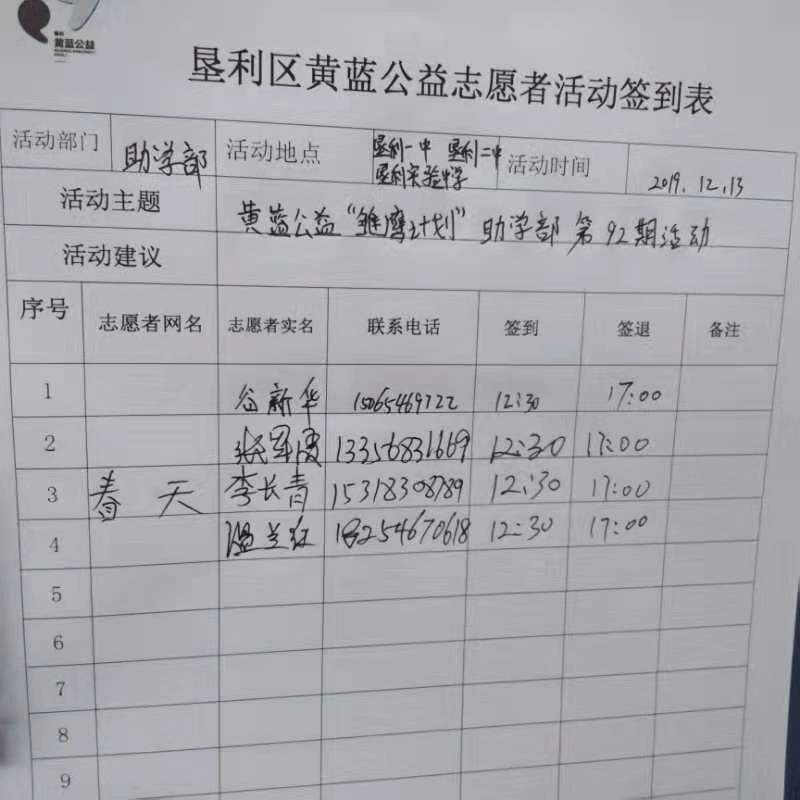 黄蓝公益
垦利区黄蓝公益志愿者活动签到表
活动部门 助学部 活动地点 垦利一中 垦利二中 垦利实验中学 活动时间 2019.12.13
活动主题 黄蓝公益“雏鹰计划”助学部第92期活动
活动建议
序号 志愿者网名 志愿者实名 联系电话 签到 签退 备注
1 谷新华 15065469722 12:30 17:00
2 张军 13356831669 12:30 17:00
3 春天 李长青 15318308789 12:30 17:00
4 温兰红 18254670618 12:30 17:00
5
6
7
8
9